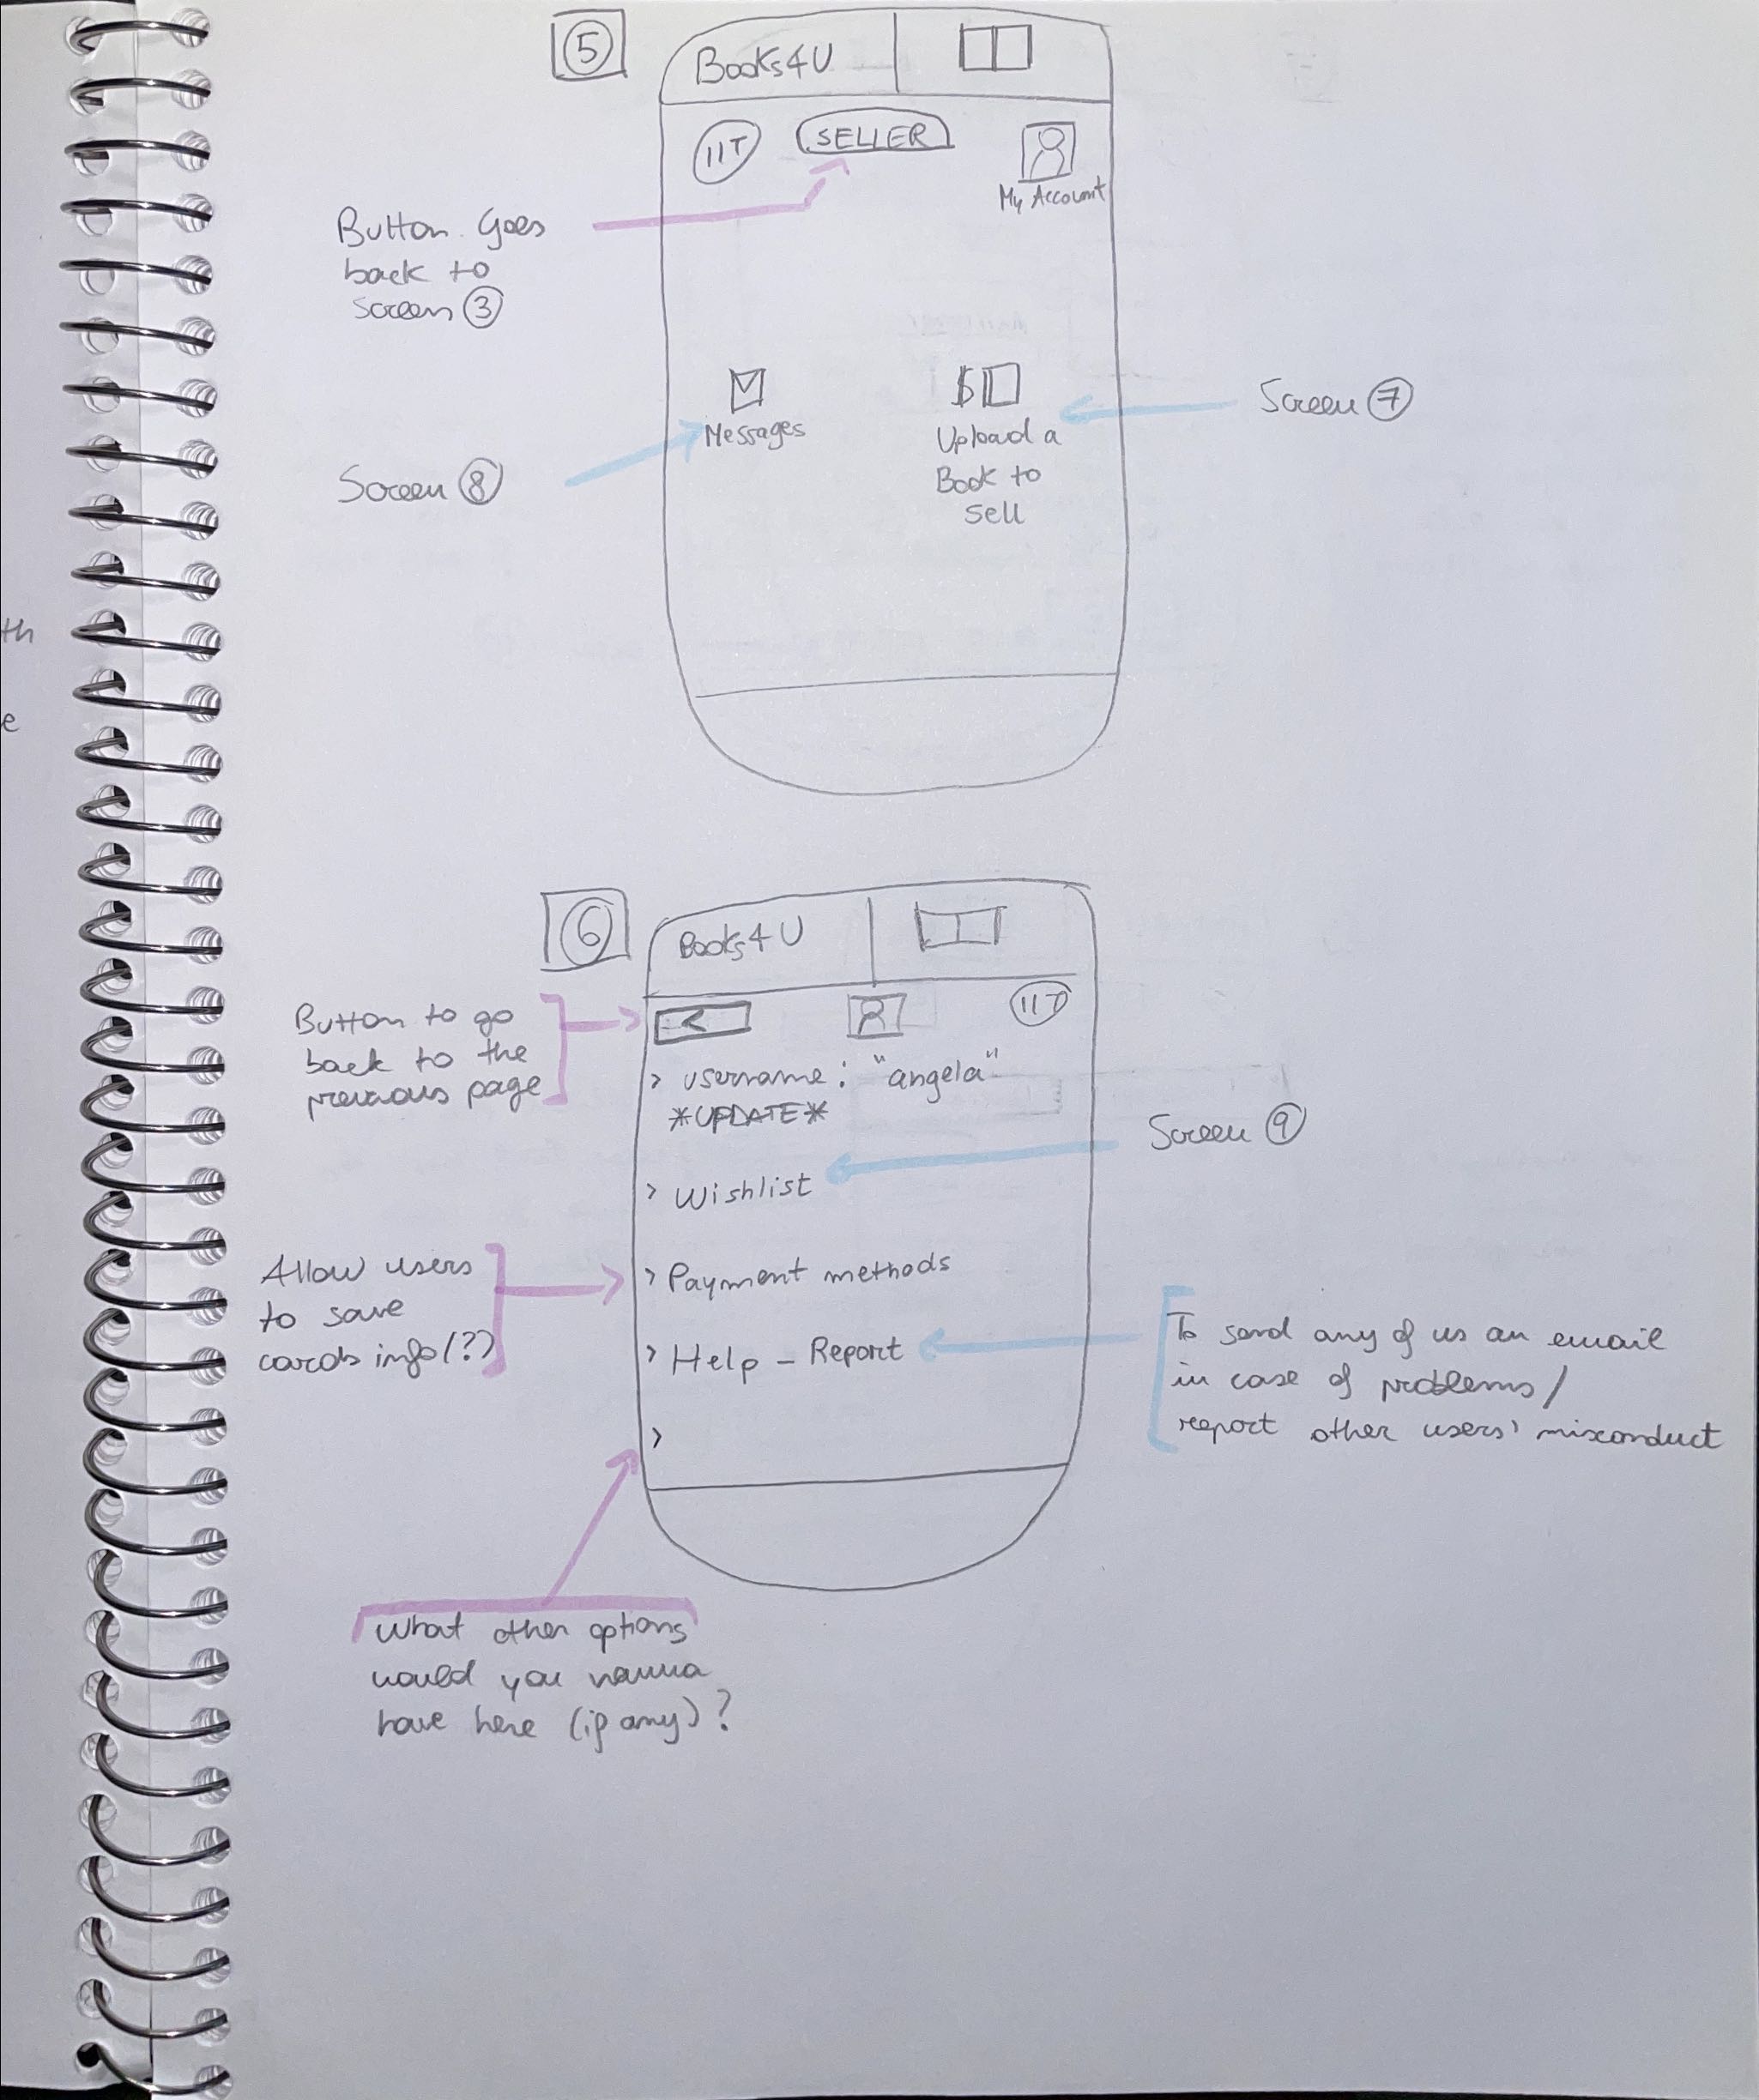 5
Books4U
IIT
SELLER
My Account
Button Goes
back to
screen 3
Messages
$
Upload a
Book to
sell
Screen 7
Screen 8
th
e
6
Books4U
<
IIT
Button to go
back to the
previous page
> username: "angela"
*UPDATE*
Screen 9
> Wishlist
Allow users
to save
cards info(?)
> Payment methods
> Help - Report
To send any of us an email
in case of problems/
report other users' misconduct
>
What other options
would you wanna
have here (if any)?